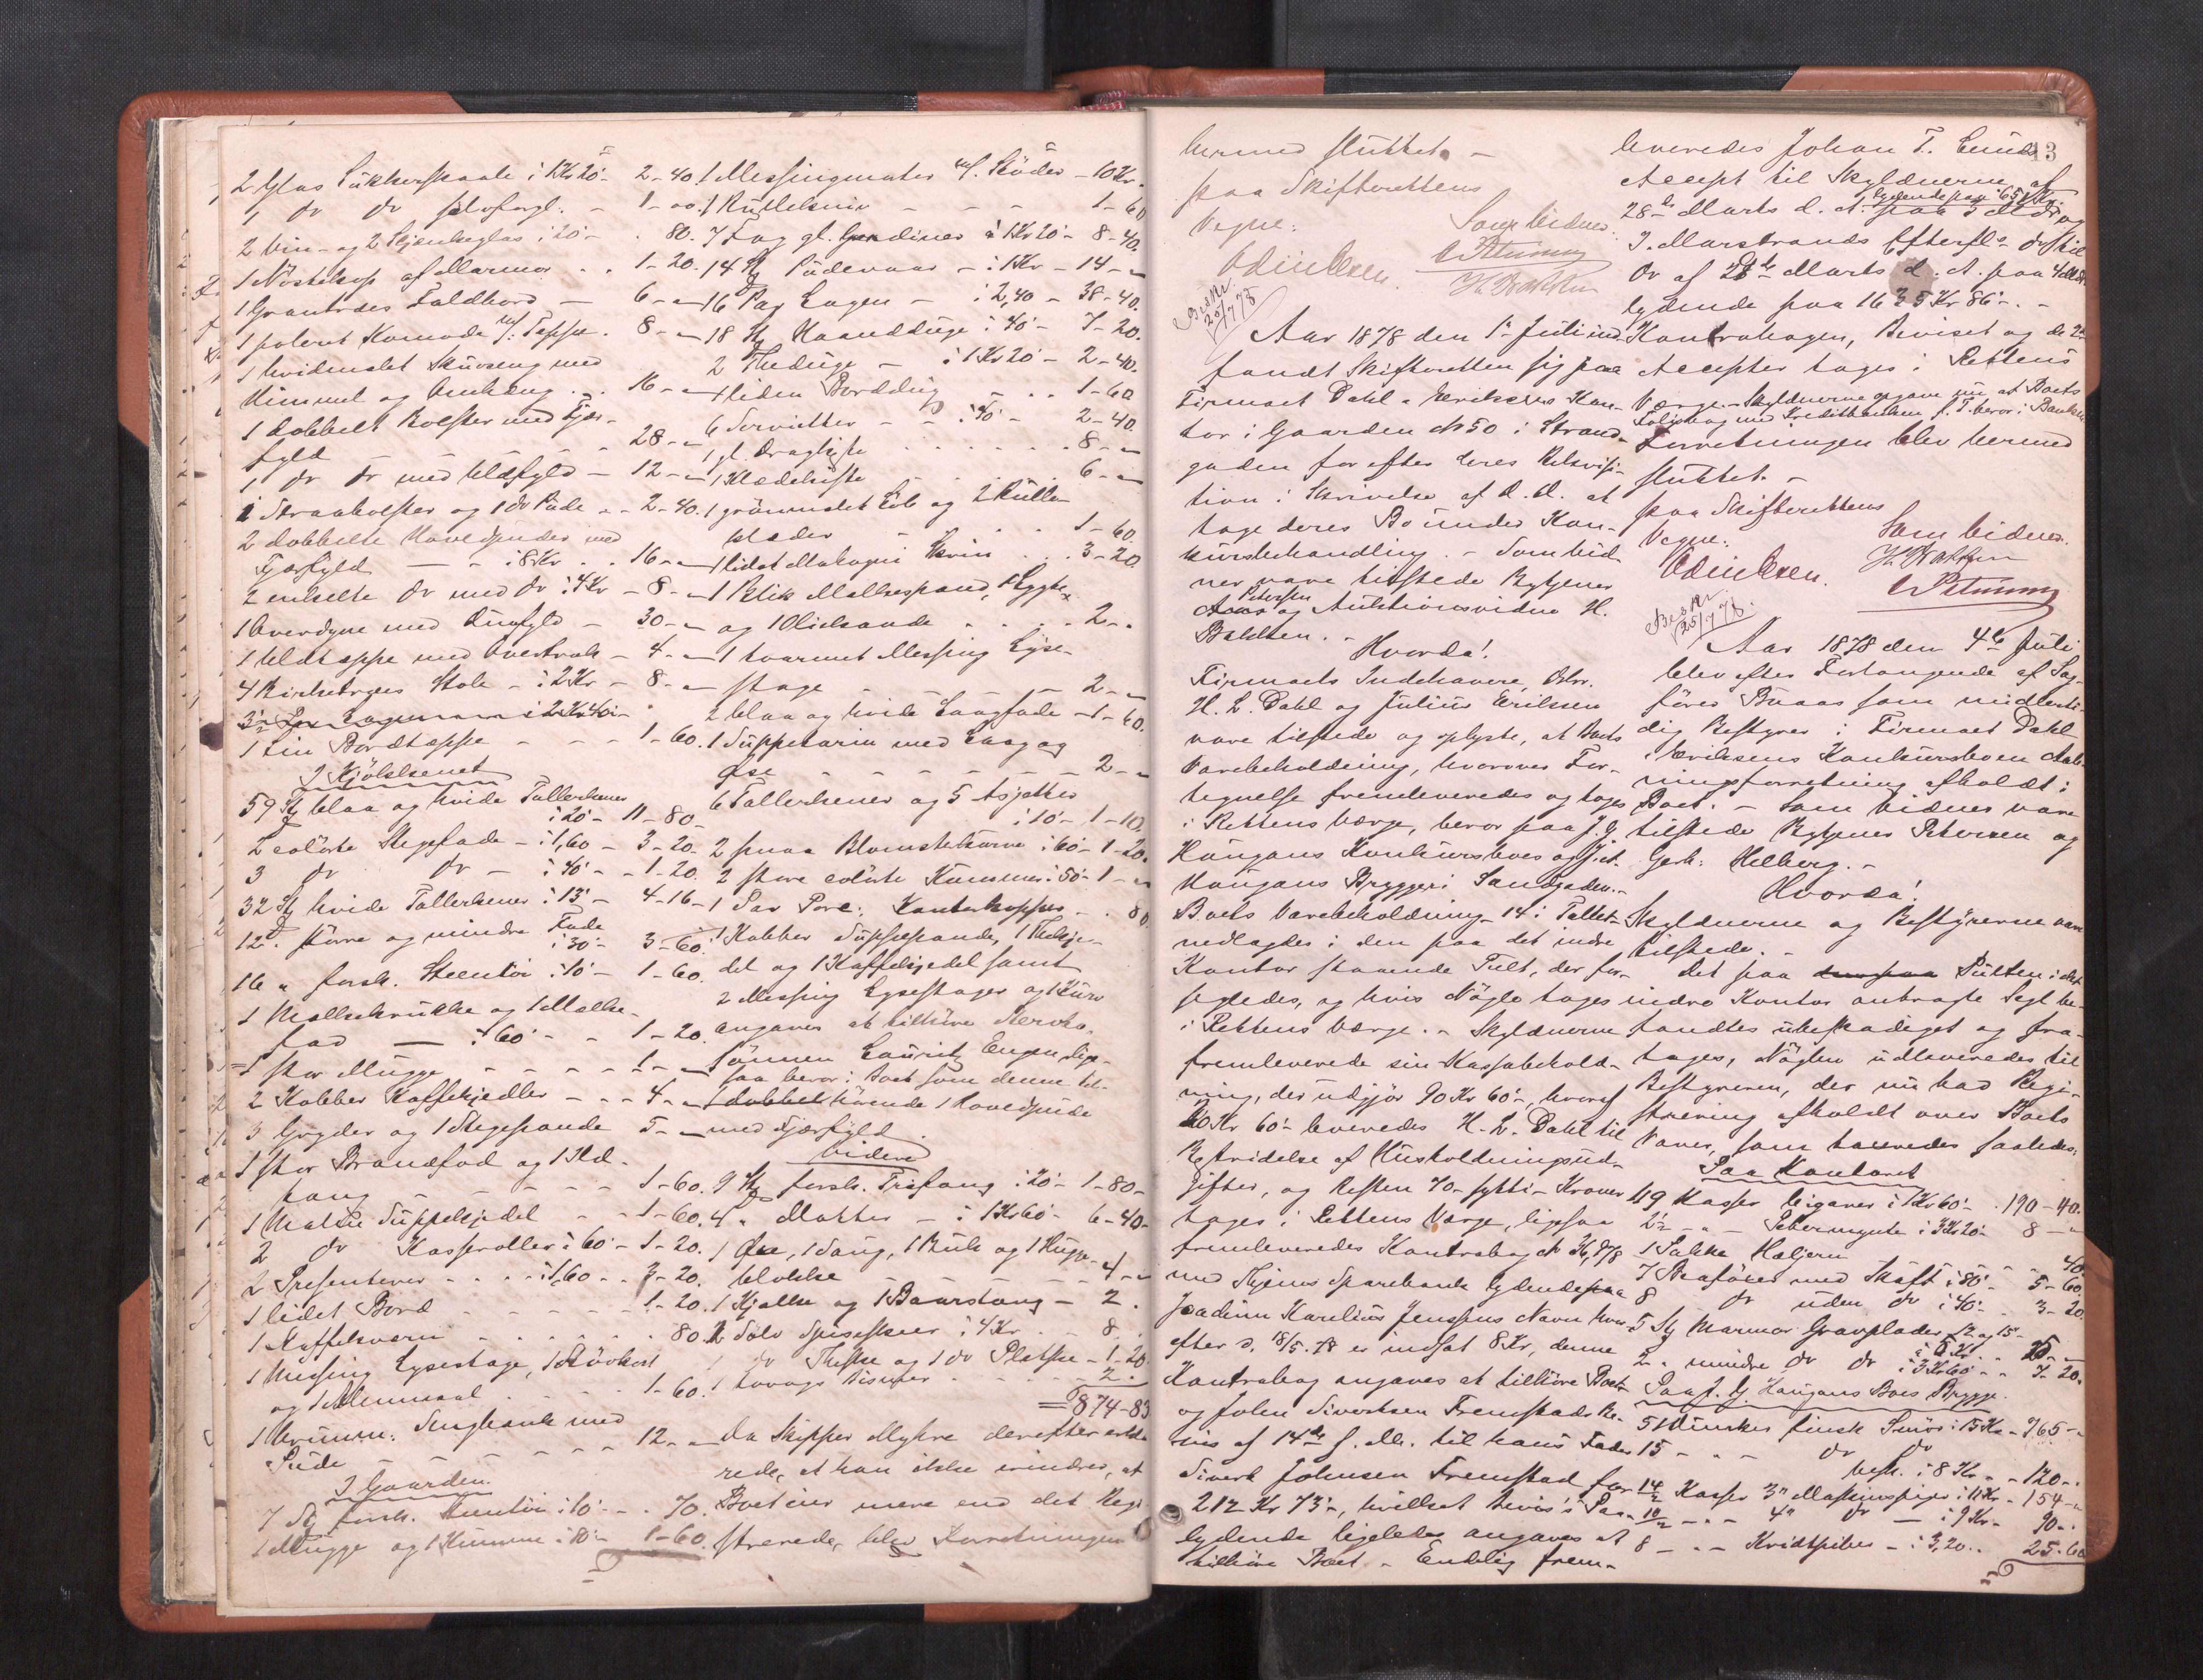 2 Glas Sukkerskaale i 1Kr20 - 2-40.
1 do do slebegl. - 1-00.
2 Vin- og 2 Skjenkeglas i 20 - 80.
1 af Marmor . . 1-20.
1 Faldbord - 6-"
1 poleret Komode m/: Tappe. 8-"
1 hvidmalet Skuvseng med
Himmel og Omhæng . . 16-"
1 dobbelt Bolster med Fjær-
fyld - - 28-"
1 do do med Uldfyld - 12-"
1 Straabolster og 1 do Pude - - 2-40.
2 dobbelte Hovedpuder med
Fjærfyld - - i 8Kr . . 16-"
2 enkelte do med do i 4Kr - 8-"
1 Overdyne med Dunfyld - 30-"
1 Uldtæppe med Overtræk - 4-"
4 Birketræes Stole - i 2Kr - 8-"
1 Bordtæppe - - - 1-60.
I Kjøkkenet
59 St blaa og hvide Tallerkener
i 20 - 11-80
2 colørte Stegefade - i 1,60 - 3-20.
3 do do - i 40 - - 1-20.
32 St hvide Tallerkener i 13 - 4-16
12 " større og mindre Fade
i 30 - 3-60
16 " forsk. Steentøi i 10 - 1-60.
1 Melkekrukke og 1 Melke-
fad - i 60 - - 1-20.
1 stor Mugge - - - - 1-"
2 Kobber Kaffekjedler - - - 4-"
3 Gryder og 1 Stegepande 5-"
1 stor Brandfod og 1 Ild-
tang - - - - - 1-60.
1 Malm Suppekjedel - - 1-60.
2 do Kasseroller i 60 - 1-20.
2 Presenterer - - - i 1,60 - - 3-20.
1 lidet Bord - - - - - 1-20.
1 Kaffekværn - - - - - 80.
1 Messing Lysestage, 1
og 1 . . . . 1-60.
1 brunm: Sengbænk med
Pude - - - - 12-"
I Gaarden
7 St forsk. Steentøi i 10 - - . 70.
1 Mugge og 1 Kumme i 80 - 1-60.
1 Messingmorter m/. Støder - 10Kr.
1 Rullekniv - - - 1-60
7 Fag gl. Gardiner á 1Kr20 - 8-40.
14 St Pudevaar - i 1Kr - 14-"
16 Par Lagen - i 2,40 - 38-40.
18 St Haandduge i 40 - 7-20.
2 Theduge - i 1Kr20 - 2-40.
1 liden Borddug - . . 1-60
6 Servietter - - i 40 - 2-40.
1 gl. Dragkiste . . . . . 8-"
1 Klædekiste - . . . . 6-"
1 grønmalet og 2 Rulle
plader - . . . 1-60.
1 lidet Mahogni Skrin . . . 3-20
1 Blik Melkespand, 1 Lygte,
og 1 Oliekande . . . . 2-.
1 tvarmet Messing Lyse-
stage - - - - - 2-"
2 blaa og hvide Laagfade - 1-60.
1 Suppeterin med Laag og
Øse - - - - - - 2-"
6 Tallerkener og 5 Asjetter
i 10 - 1-10.
2 smaa Blomsterkurve i 60 - 1-20.
2 store colørte Kummer i 50 - 1-"
1 Par Porc: Kanterkopper - . 80
1 Kobber Suppepande, 1 Thekje-
del og 1 Kaffekjedel samt
2 Messing Lysestager og 1 Kurv
angaves at tilhøre
sønnen Lauritz Engen, lige-
saa beror i Boet som denne til-
hørende 1 Hovedpude
med Fjærfyld.
Videre
9 St forsk. Træfang i 20 - 1-80-
4 " Matter - i 1Kr60 6-40-
1 Øxe, 1 Saug, 1 og 1 Hugge-
blokke - - - - 4-"
1 Kjelke og 1 Baarstang - 2.
2 Sølv Spiseskeer i 4Kr . - 8 .
1 do Theske og 1 do - 1-20.
1 . . . . . 2.
= 874-83
Da Skipper Myhre derefter erklæ
rede, at han ikke erindrer, at
Boet eier mere end det Regi-
strerede, blev Forretningen
13
hermed sluttet. -
paa Skifterettens
Vegne:
Som Vidner.
H. Bakken
Besk.
25/7 78
Aar 1878 den 1ste Juli ind-
fandt Skifteretten sig paa
Firmaet Dahl & Eriksens Kon-
tor i Gaarden No 50 i Strand-
gaden for efter deres Rekvisi-
tion i Skrivelse af d. D. at
tage deres Bo under Kon-
kursbehandling. - Som Vid
ner vare tilstede Bytjener
Petersen
og Auktionsvidne H.
Bakken. -
Hvorda!
Firmaets Indehavere, Dhrr.
H. L. Dahl og Julius Eriksen
vare tilstede og oplyste, at Boets
Varebeholdning, hvorover For-
tegnelse fremleveredes og toges
i Rettens Værge, beror paa J. G.
Haugans Konkursboes og J. A.
Haugans Bryggeri Sandgaden. -
Boets Varebeholdning - 14 i Tallet -
nedlagdes i den paa det indre
Kontor staaende Pult, der for-
segledes, og hvis Nøgle toges
i Rettens Værge. - Skyldnerne
fremleverede sin Kassabehold-
ning, der udgjør 90 Kr 60, hvoraf
20 Kr 60 leveredes H. L. Dahl til
Bestridelse af Husholdningsud-
gifter, og Resten 70 - sytti - Kroner
toges i Rettens Værge, ligesaa
fremleveredes Kontrabog No
med Thjems Sparebank lydende paa
Joachim Karelius Jenssens Navn hvor-
efter d. 18/5. 78 er indsat 8 Kr, denne
Kontrabog angaves at tilhøre Boet
og Johan Sivertsen Fremstads Be-
vis af 14de f. M. til hans Fader
Sivert Johnsen Fremstad for
212 Kr 73, hvilket bevis's Paa-
lydende ligeledes angaves at
tilhøre Boet. - Endelig frem-
leveredes Johan T. Lunds
Accept til Skyldnerne af
lydende paa 651 Kr.
28de Marts d. A. paa 3 Mdr og
J. Marstrands Efterfl. do til
do af 28de Marts d. A. paa 4 Mdr.
lydende paa 1635 Kr 86. -
Kontrabogen, Beviset og de 2de
Accepter toges i Rettens
Værge. - Skyldnerne opgave nu at Boets
Foliobog med Kreditbanken p. T. beror i Banken.
Forretningen blev hermed
sluttet. -
paa Skifterettens
Vegne:
Som Vidner.
H. Bakken
Besk.
25/7 78.
Aar 1878 den 4de Juli
blev efter Forlangende af Sag-
fører Buaas som midlerti-
dig Bestyrer i Firmaet Dahl
& Eriksens Konkursboen Aab-
ningsforretning afholdt i
Boet. - Som Vidner vare
tilstede Bytjener Petersen og
Gerh: Helberg. -
Hvorda!
Skyldnerne og Bestyrerne vare
tilstede. -
Det paa Pulten i det
indre Kontor anbragte Segl be-
fandtes ubeskadiget og fra-
toges, Nøglen udleveredes til
Bestyreren, der nu bad Regi-
strering afholdt over Boets
Varer, som taxeredes saaledes:
Paa Kontoret
119 Kasser Cigarer i 1Kr60 - . 190-40.
2½ - " - Pebermynte i 3Kr20 - 8-"
1 Pakke Hæljern - - - . 40
7 med Skaft i 80 - 5-60.
8 do uden do i 40 - 3-20
5 St Marmor Gravplader 12 og 15"
i 5 Kr. . 25-"
2 " mindre do do i 3Kr60 - - 7-20.
Paa J. G. Haugans Boes Brygge.
51 finsk Smør i 15 Kr - 765-"
15 - " - do do
besk. i 8 Kr. - - 120-.
14/2 Kasser 3" Maskinspiger i 11Kr - 154-"
10/2 - " - 4" do - i 9 Kr - 90-.
8 - " - Kridtpiber - i 3,20 . . 25-60